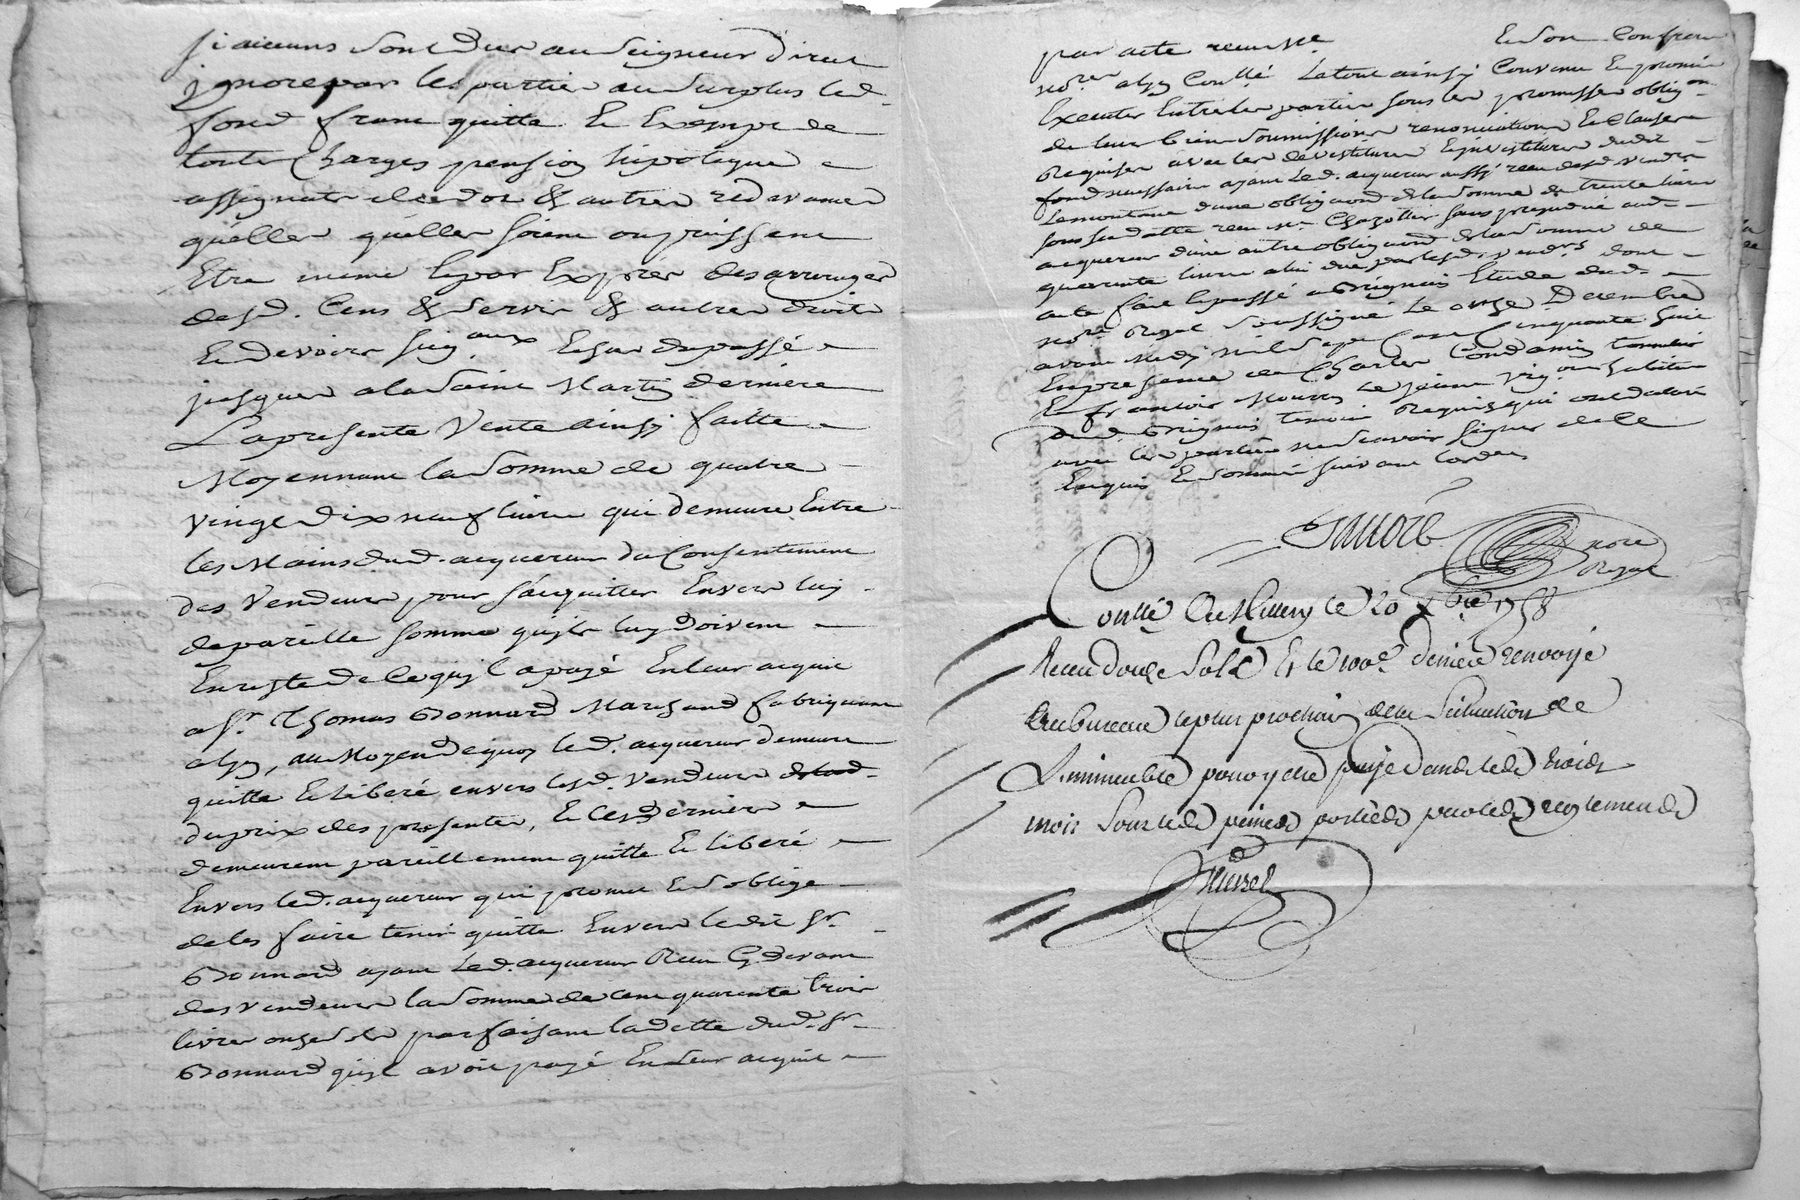 si aucuns sont dus au seigneur direct
ignore par les parties au surplus led.
fond franc quitte et exempt de
toutes charges pension hipoteque
assignats de dot & autres redevances
quelles quelles soient ou puissent
Etre meme par Exprès des arrerages
desd. Cens & servis & autres droits
Et devoirs seig.aux du passé
jusques a la saint Martin derniere
La presente Vente ainsy faitte
Moyennant la somme de quatre
vingt dix neuf livres qui demeure Entre
les Mains dud. acquereur du Consentement
des Vendeurs pour s'acquitter Envers luy
de pareille somme qu'ils luy doivent
En reste de ce qu'il a payé En leur acquit
a Sr. Thomas Bonnard Marchand fabriquant
, au Moyen de quoy led. acquereur demeure
quitte Et libéré envers lesd. Vendeurs
du prix des presentes, Et Ces derniers
demeurent pareillement quitte Et libéré
Envers led. acquereur qui promet Et s'oblige
de les faire tenir quitte Envers ledit Sr.
Bonnard ayant Led. acquereur Reçu Cy devant
des vendeurs la somme de cent quarente trois
livres onze sols parfaisant la dette dud. Sr.
Bonnard qu'il avoit payé En leur acquit
par acte reçu Me Et son Confrere
nore. Le tout ainsy Convenu Et promis
Executer Entre les parties sous les promesses oblig.on
de leurs biens soumissions renonciations Et Clauses
Requises avec les devestitures Et investitures dudit
fond necessaires ayant Led. acquereur aussy reçu desd. vendrs
Le montant d'une obligaon de la somme de trente livres
sous sa datte reçu Me Chazottier sans prejudice aud.
acquereur d'une autre obligaon de la somme de
quarente livres a lui due par lesd. vendrs dont
acte fait Et passé a Grignis Etude dud.
nore Royal soussigné Le onze Decembre
avant Midy mil sept Cent Cinquante huit
En presence de Charles Condamin
Et francois Mourrs Le jeune habitant
dud. Grignis temoins Requis qui ont declaré
avec les parties ne scavoir signer de ce
Enquis Et sommé suivant Lordce
nore
Royal
Conllé le 20 Xbre 1758
Recu douze sols Et le 100e denier renvoyé
au bureau le plus prochain de la situation de
L'immeuble pour y etre payé dans les trois
mois sous les peines portées par les reglements